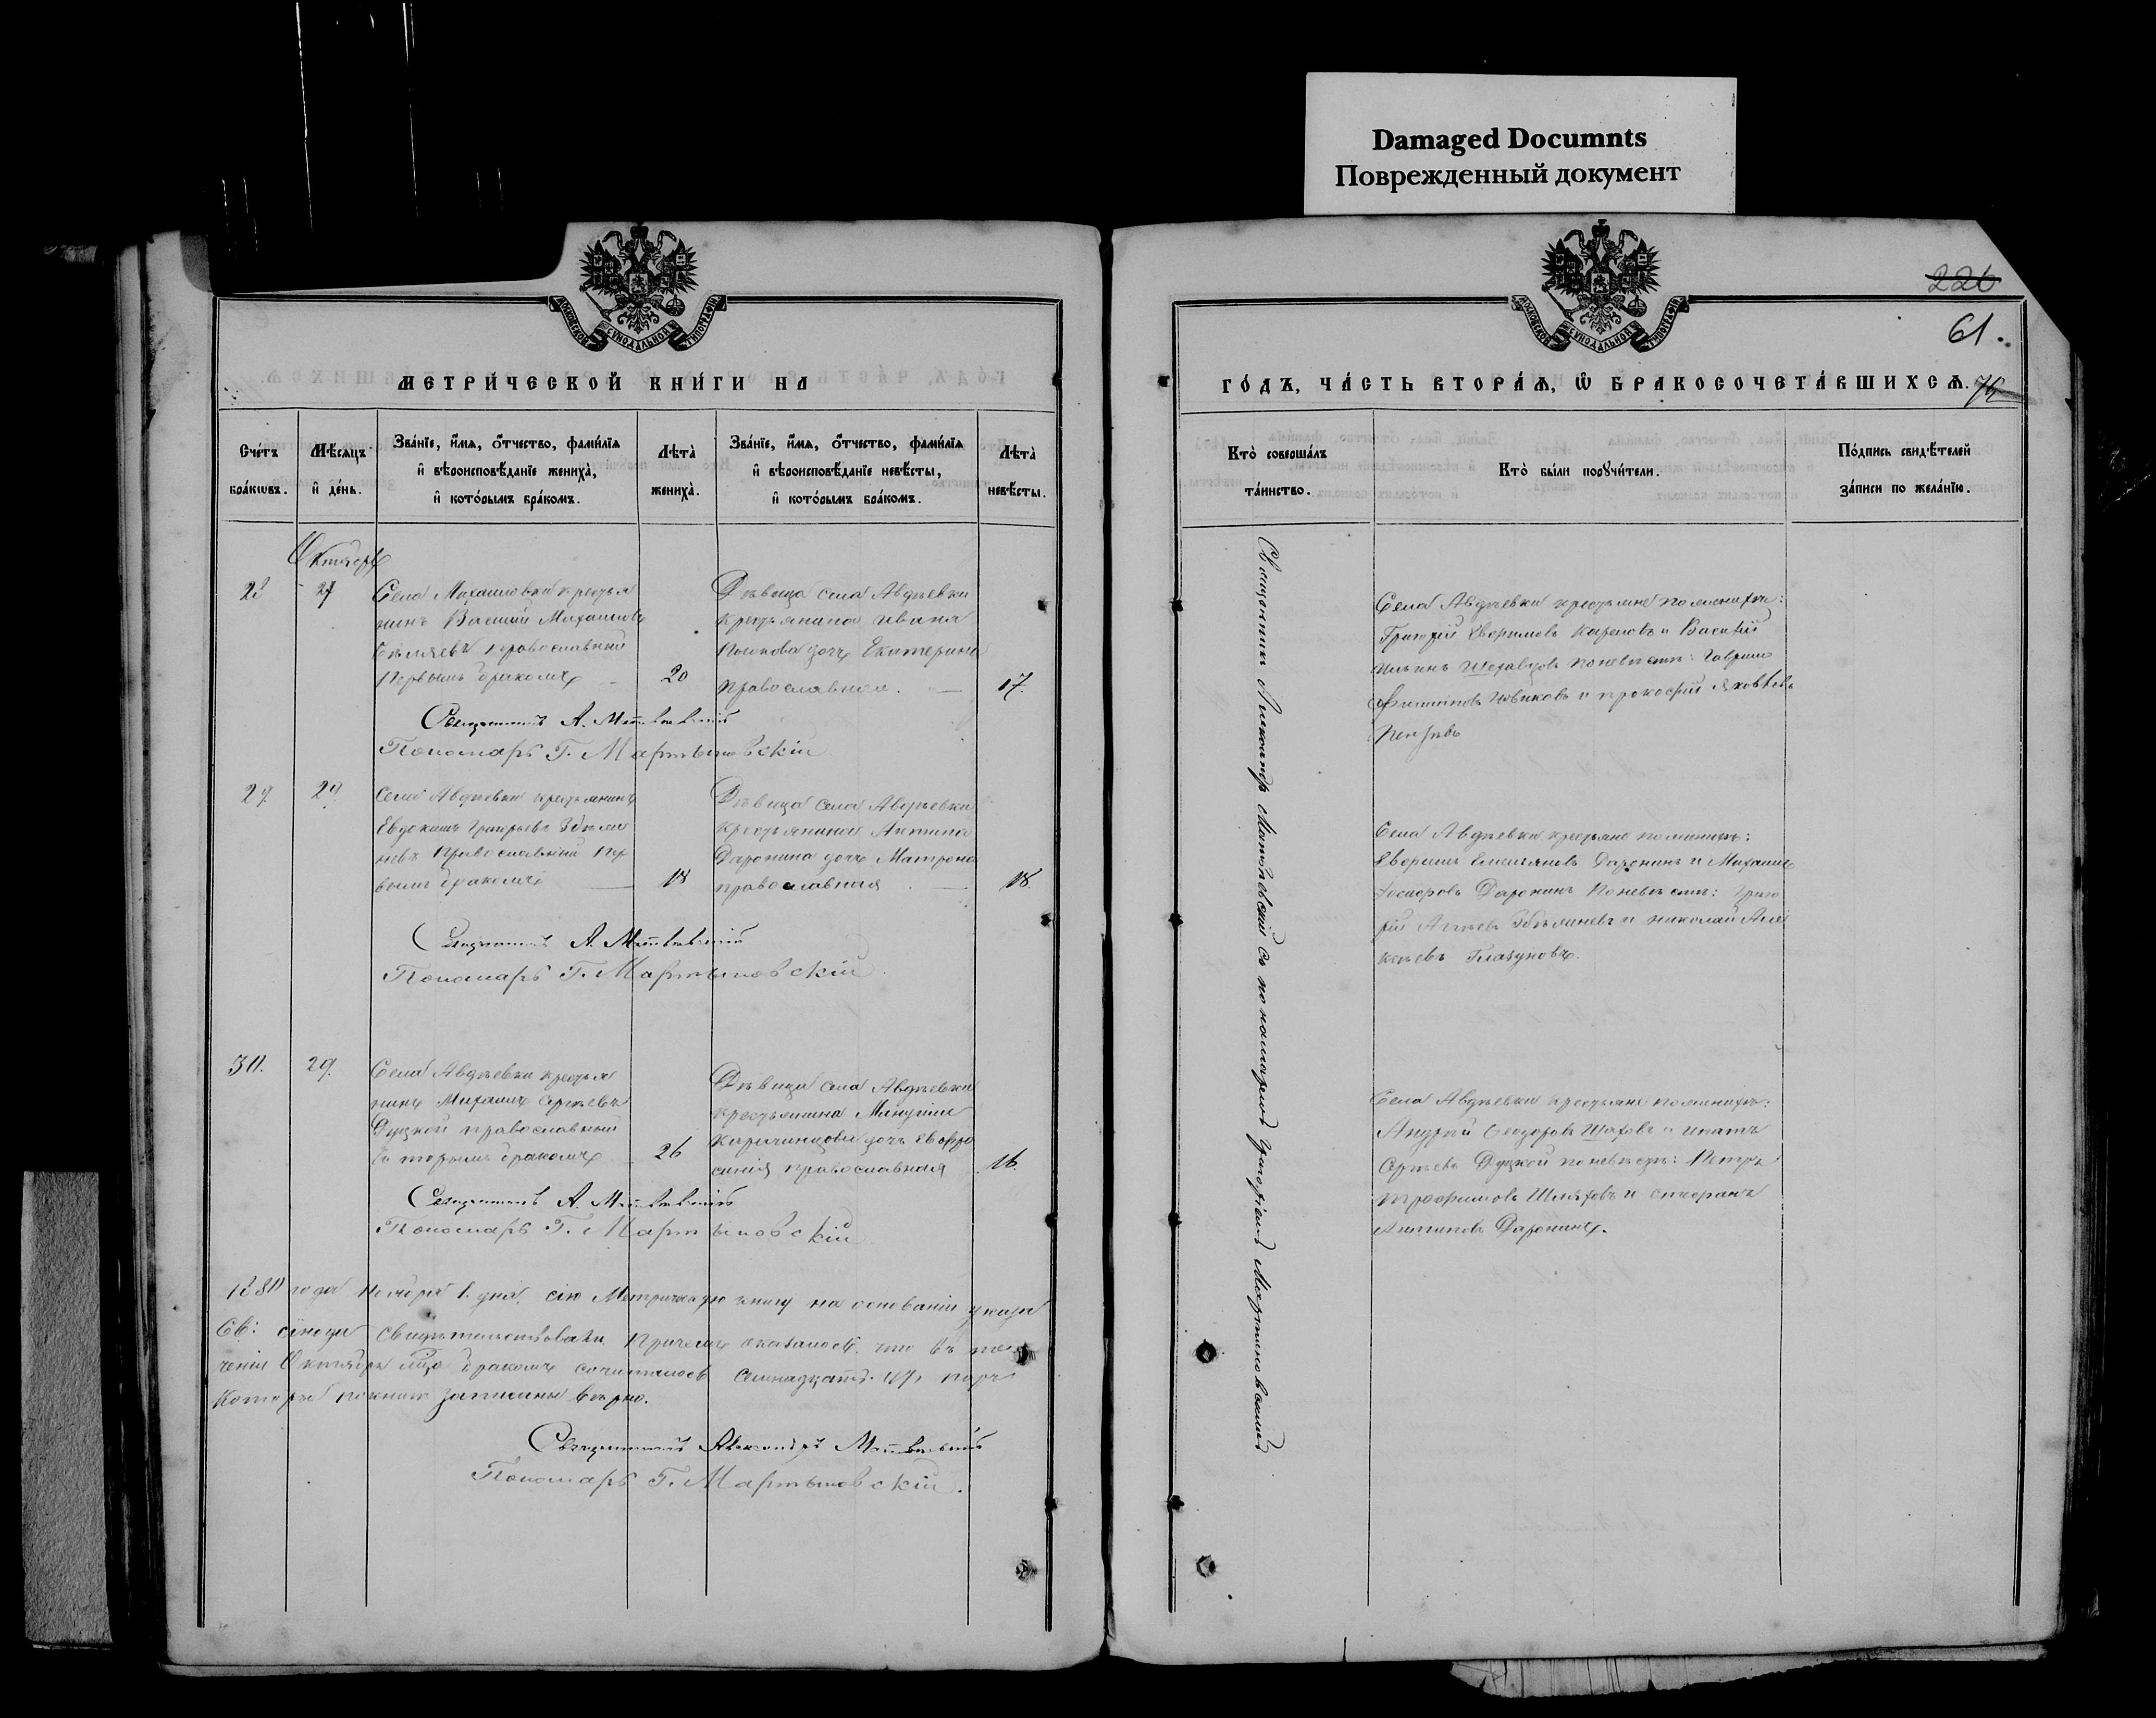 Damaged Documnts
Поврежденный документ
МОСКОВСКОЙ СУНОДАЛЬНОЙ ТИПОГРАФІИ
МЕТРИ́ЧЕСКОЙ КНИ́ГИ НА
Сче́тъ бра́кѡвъ.
Мѣ́сѧцъ и҆ де́нь.
Зва́нїе, и҆́мѧ, ѻ҆́тчество, фами́лїѧ и҆ вѣроисповѣ́данїе жениха̀, и҆ кото́рымъ бра́комъ.
Лѣта̀ жениха̀.
Зва́нїе, и҆́мѧ, ѻ҆́тчество, фами́лїѧ и҆ вѣроисповѣ́данїе невѣ́сты, и҆ кото́рымъ бра́комъ.
Лѣта̀ невѣ́сты.
Октябрь
28 27
Села Михайловки крестья
нинъ Василий Михайловъ
Бѣляевъ православный
первымъ бракомъ 20
Дѣвица села Авдѣевки
крестьянина Ивана
дочь Екатерина
православная. 17.
Священникъ А. Матвѣевскій
Пономарь Г. Мартыновскій
29 29
Села Авдѣевки крестьянинъ
Евдокимъ Григорьевъ
православный пер
вымъ бракомъ 18
Дѣвица села Авдѣевки
крестьянина Антипа
Доронина дочь Матрона
православная 18
Священникъ А. Матвѣевскій
Пономарь Г. Мартыновскій.
30. 29.
Села Авдѣевки крестья
нинъ Михаилъ Сергѣевъ
Дуцкой православный
вторымъ бракомъ 26
Дѣвица села Авдѣевки
крестьянина
дочь Евфро
синія православная 16.
Священникъ А. Матвѣевскій
Пономарь Г. Мартыновскій
1880 года Ноября 1. дня, сію Метрическую книгу на основаніи указа
Св: синода свидѣтельствовали причемъ оказалось, что въ те
ченіи Октября м͠ца бракомъ сочиталось семнадцать. 17, паръ
которые по книгѣ записаны вѣрно.
Священникъ Александръ Матвѣевскій
Пономарь Г. Мартыновскій.
226
МОСКОВСКОЙ СУНОДАЛЬНОЙ ТИПОГРАФІИ
61.
ГО́ДЪ, ЧА́СТЬ ВТОРА́Ѧ, Ѽ БРАКОСОЧЕТА́ВШИХСѦ.
Кто̀ соверша́лъ та́инство.
Кто̀ бы́ли порꙋчи́тели.
По́дпись свидѣ́телей за́писи по жела́нїю.
Священникъ Александръ Матвѣевскій съ пономаремъ Григоріемъ Мартыновскимъ
Села Авдѣевки крестьяне по женихѣ:
Григорій и Василій
Ильинъ Шехавцовъ по невѣстѣ: Гавріилъ
Филиповъ Новиковъ и Прокофій Яковлевъ
Села Авдѣевки крестьяне по женихѣ:
Емельяновъ Доронинъ и Михаилъ
Доронинъ по невѣстѣ: Григо
рій и Николай Але
ксѣевъ Глазуновъ.
Села Авдѣевки крестьяне по женихѣ:
Андрей Феодоровъ Шаховъ и Игнатъ
Сергѣевъ Дуцкой по невѣстѣ: Петръ
Трофимовъ Шляховъ и
Антиповъ Доронинъ.